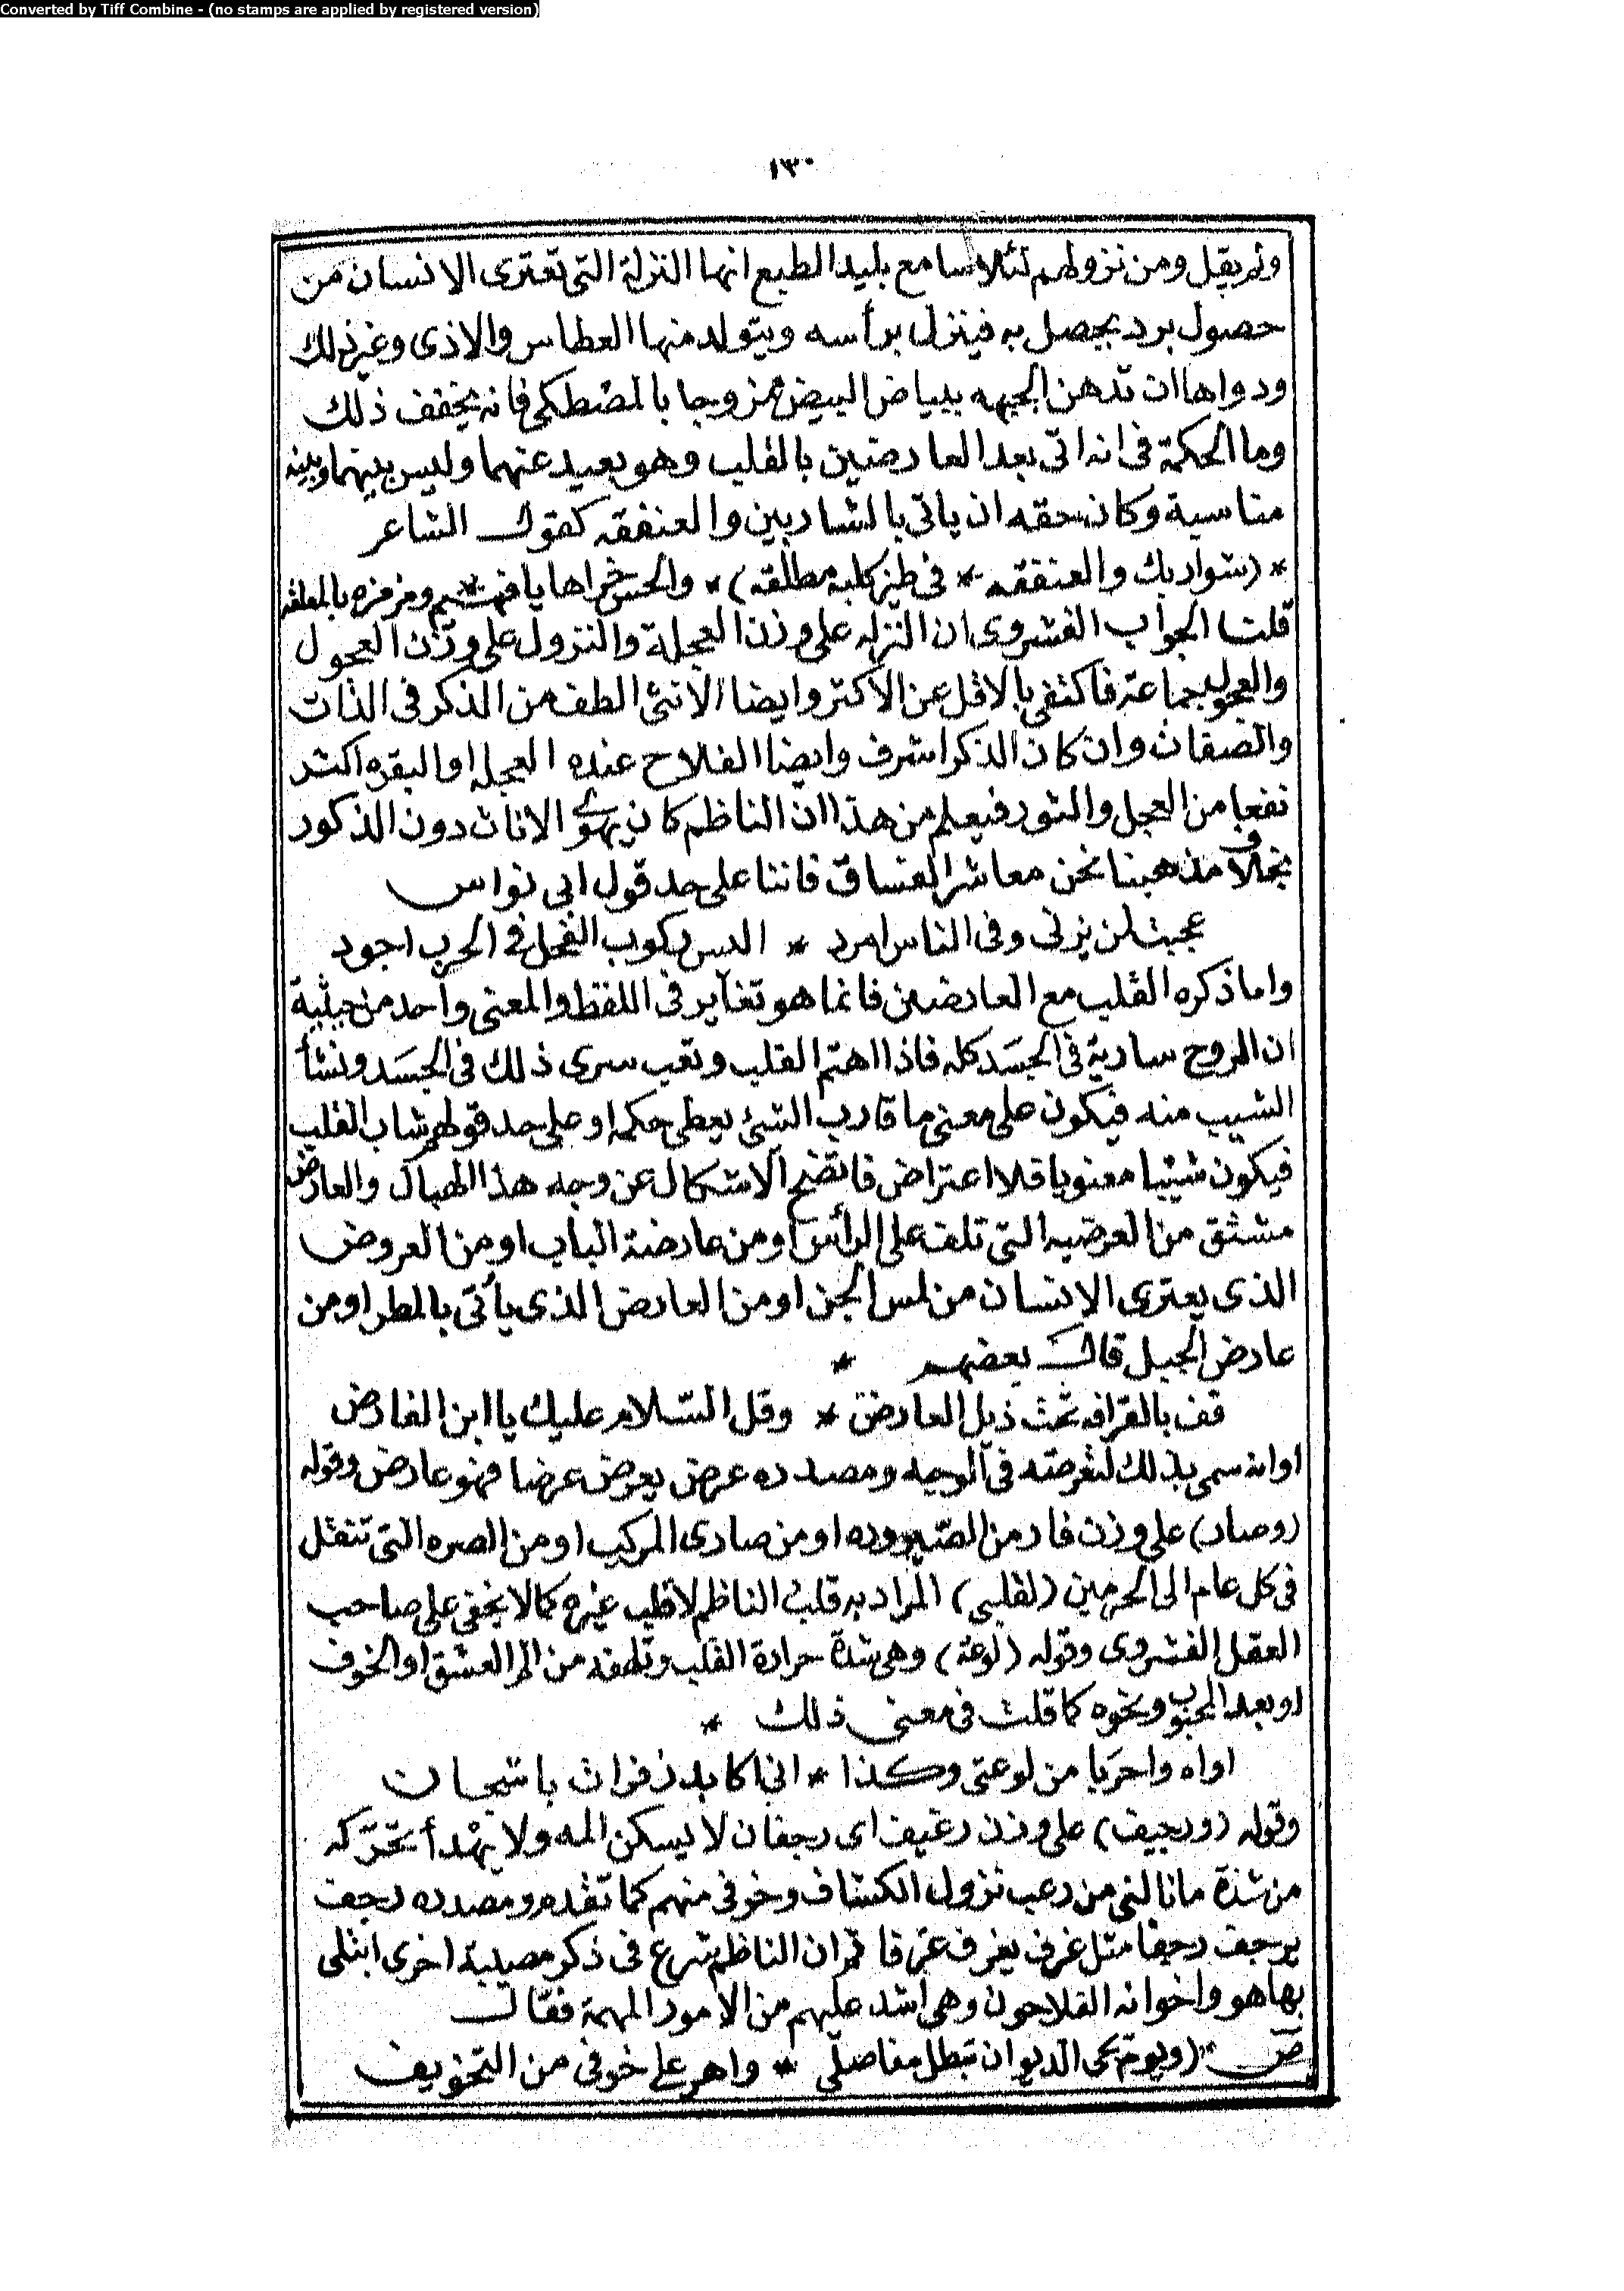 Converted by Tiff Combine - (no stamps are applied by registered version)
١٣٠
ولم يقل ومن نزولهم لئلا سامع بليد الطبع انها النزلة التى تعترى الانسان من
حصول برد يحصل به فينزل برأسه ويتولد منها العطاس والاذى وغير ذلك
ودواها ان تدهن الجبهه ببياض البيض ممزوجا بالمصطكى فانه يخفف ذلك
وما الحكمة فى انه اتى بعد العارضين بالقلب وهو بعيد عنهما وليس بينهما وبينه
مناسبة وكان حقه ان ياتى بالشاربين والعنفقه كقول الشاعر
* (شواربك والعنفقه * فى طيز كلبة مطلقه) * والحس خراها يا فهيم ومزمزه بالمعلقه
قلت الجواب الفشروى ان النزله على وزن العجلة والنزول على وزن العجول
والعجول جماعة فاكتفى بالاقل عن الاكثر وايضا الانثى الطف من الذكر فى الذات
والصفات وان كان الذكر اشرف وايضا الفلاح عنده العجله او البقره اكثر
نفعا من العجل والثور فيعلم من هذا ان الناظم كان يهوى الاناث دون الذكور
بخلاف مذهبنا نحن معاشر الفساق فاننا على حد قول ابى نواس
عجبت لمن يزنى وفى الناس امرد * اليس ركوب الفحل فى الحرب اجود
واما ذكره القلب مع العارضين فانما هو تغاير فى اللفظ والمعنى واحد من حيثية
ان الروح سارية فى الجسَد كله فاذا اهتم القلب وتعب سرى ذلك فى الجسَد ونشأ
الشيب منه فيكون على معنى ما قارب الشئ يعطى حكمه او على حد قولهم شاب القلب
فيكون شيبا معنويا فلا اعتراض فاتضح الاشكال عن وجه هذا الهبال والعارض
مشتق من العرضيه التى تلف على الرأس او من عارضة الباب او من العروض
الذى يعترى الانسان من لمس الجن او من العارض الذى يأتى بالمطر او من
عارض الجبل قال بعضهم *
قف بالقرافه تحت ذيل العارض * وقل السّلام عليك يا ابن الفارض
او انه سمى بذلك لتعرضه فى الوجه ومصدره عرض يعرض عرضا فهو عارض وقوله
(وصار) على وزن فار من الصّيروره او من صارى المركب او من الصره التى تنقل
فى كل عام الى الحرمين (لقلبى) المراد به قلب الناظم لا قلب غيره كما لا يخفى على صاحب
العقل الفشروى وقوله (لوعة) وهى شدة حرارة القلب وتلهفه من الم العشق او الخوف
او بعد المحبوب ونحوه كما قلت فى معنى ذلك *
اواه واحربا من لوعتى وكذا * انى اكابد زفرات باشجان
وقوله (ورجيف) على وزن رغيف اى رجفان لا يسكن المه ولا يهْدأ تحرّكه
من شدة ما نالنى من رعب نزول الكشاف وخوفى منهم كما تقدم ومصدره رجف
يرجف رجفا مثل غرف يغرف غرفا ثم ان الناظم شرع فى ذكر مصيبة اخرى ابتلى
بها هو واخوانه الفلاحون وهى اشد عليهم من الامور المهمة فقال
ص (ويوم تجى الديوان تبطل مفاصلى * واهر على خوفى من التخويف